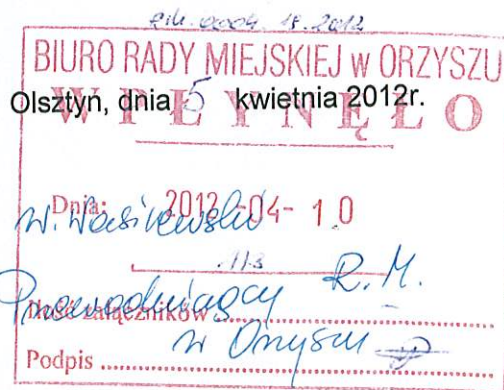 0004. 18.2012
BIURO RADY MIEJSKIEJ w ORZYSZU
Olsztyn, dnia 5 kwietnia 2012r.
WPŁYNĘŁO
Dnia: 2012 -04- 10
W. Wasilewski
Przewodniczący R.M.
załączników
w Orzyszu
Podpis